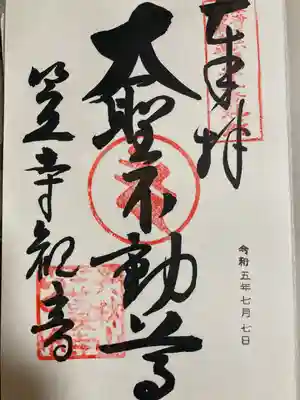 奉拝
大聖不動尊
笠寺観音
令和五年七月七日